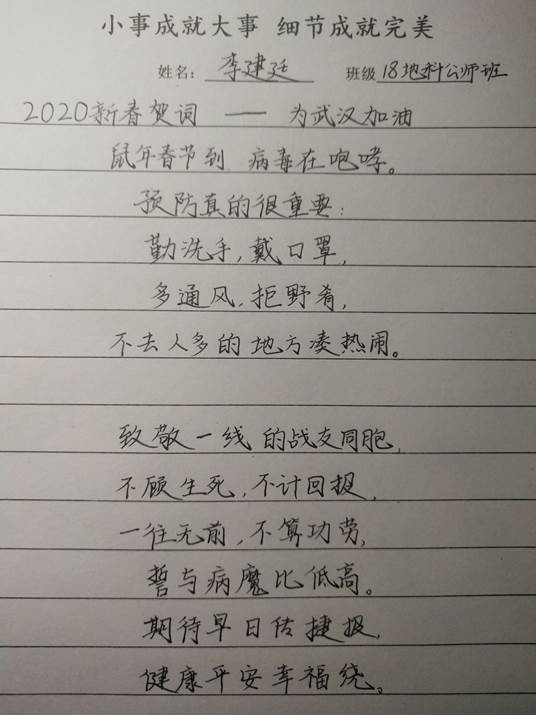 小事成就大事 细节成就完美
姓名: 李建廷 班级 18地科公师班
2020新春贺词 —— 为武汉加油
鼠年春节到, 病毒在咆哮。
预防真的很重要:
勤洗手,戴口罩,
多通风,拒野肴,
不去人多的地方凑热闹。
致敬一线的战友同胞,
不顾生死,不计回报,
一往无前,不算功劳,
誓与病魔比低高。
期待早日传捷报,
健康平安幸福绕。